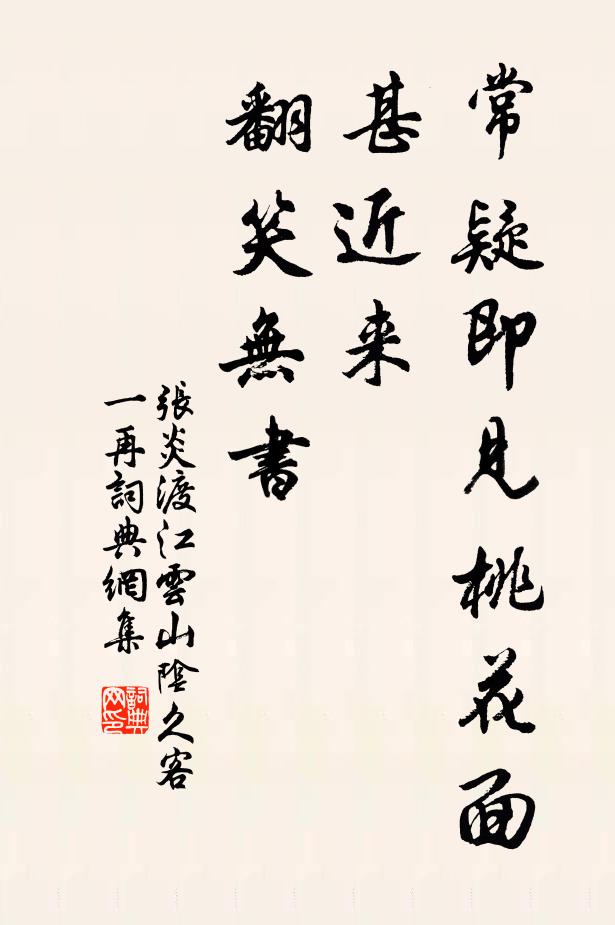 常疑即見桃花面
甚近来
翻笑無書
張炎渡江雲山陰久客
一再詞典網集
詞典网印